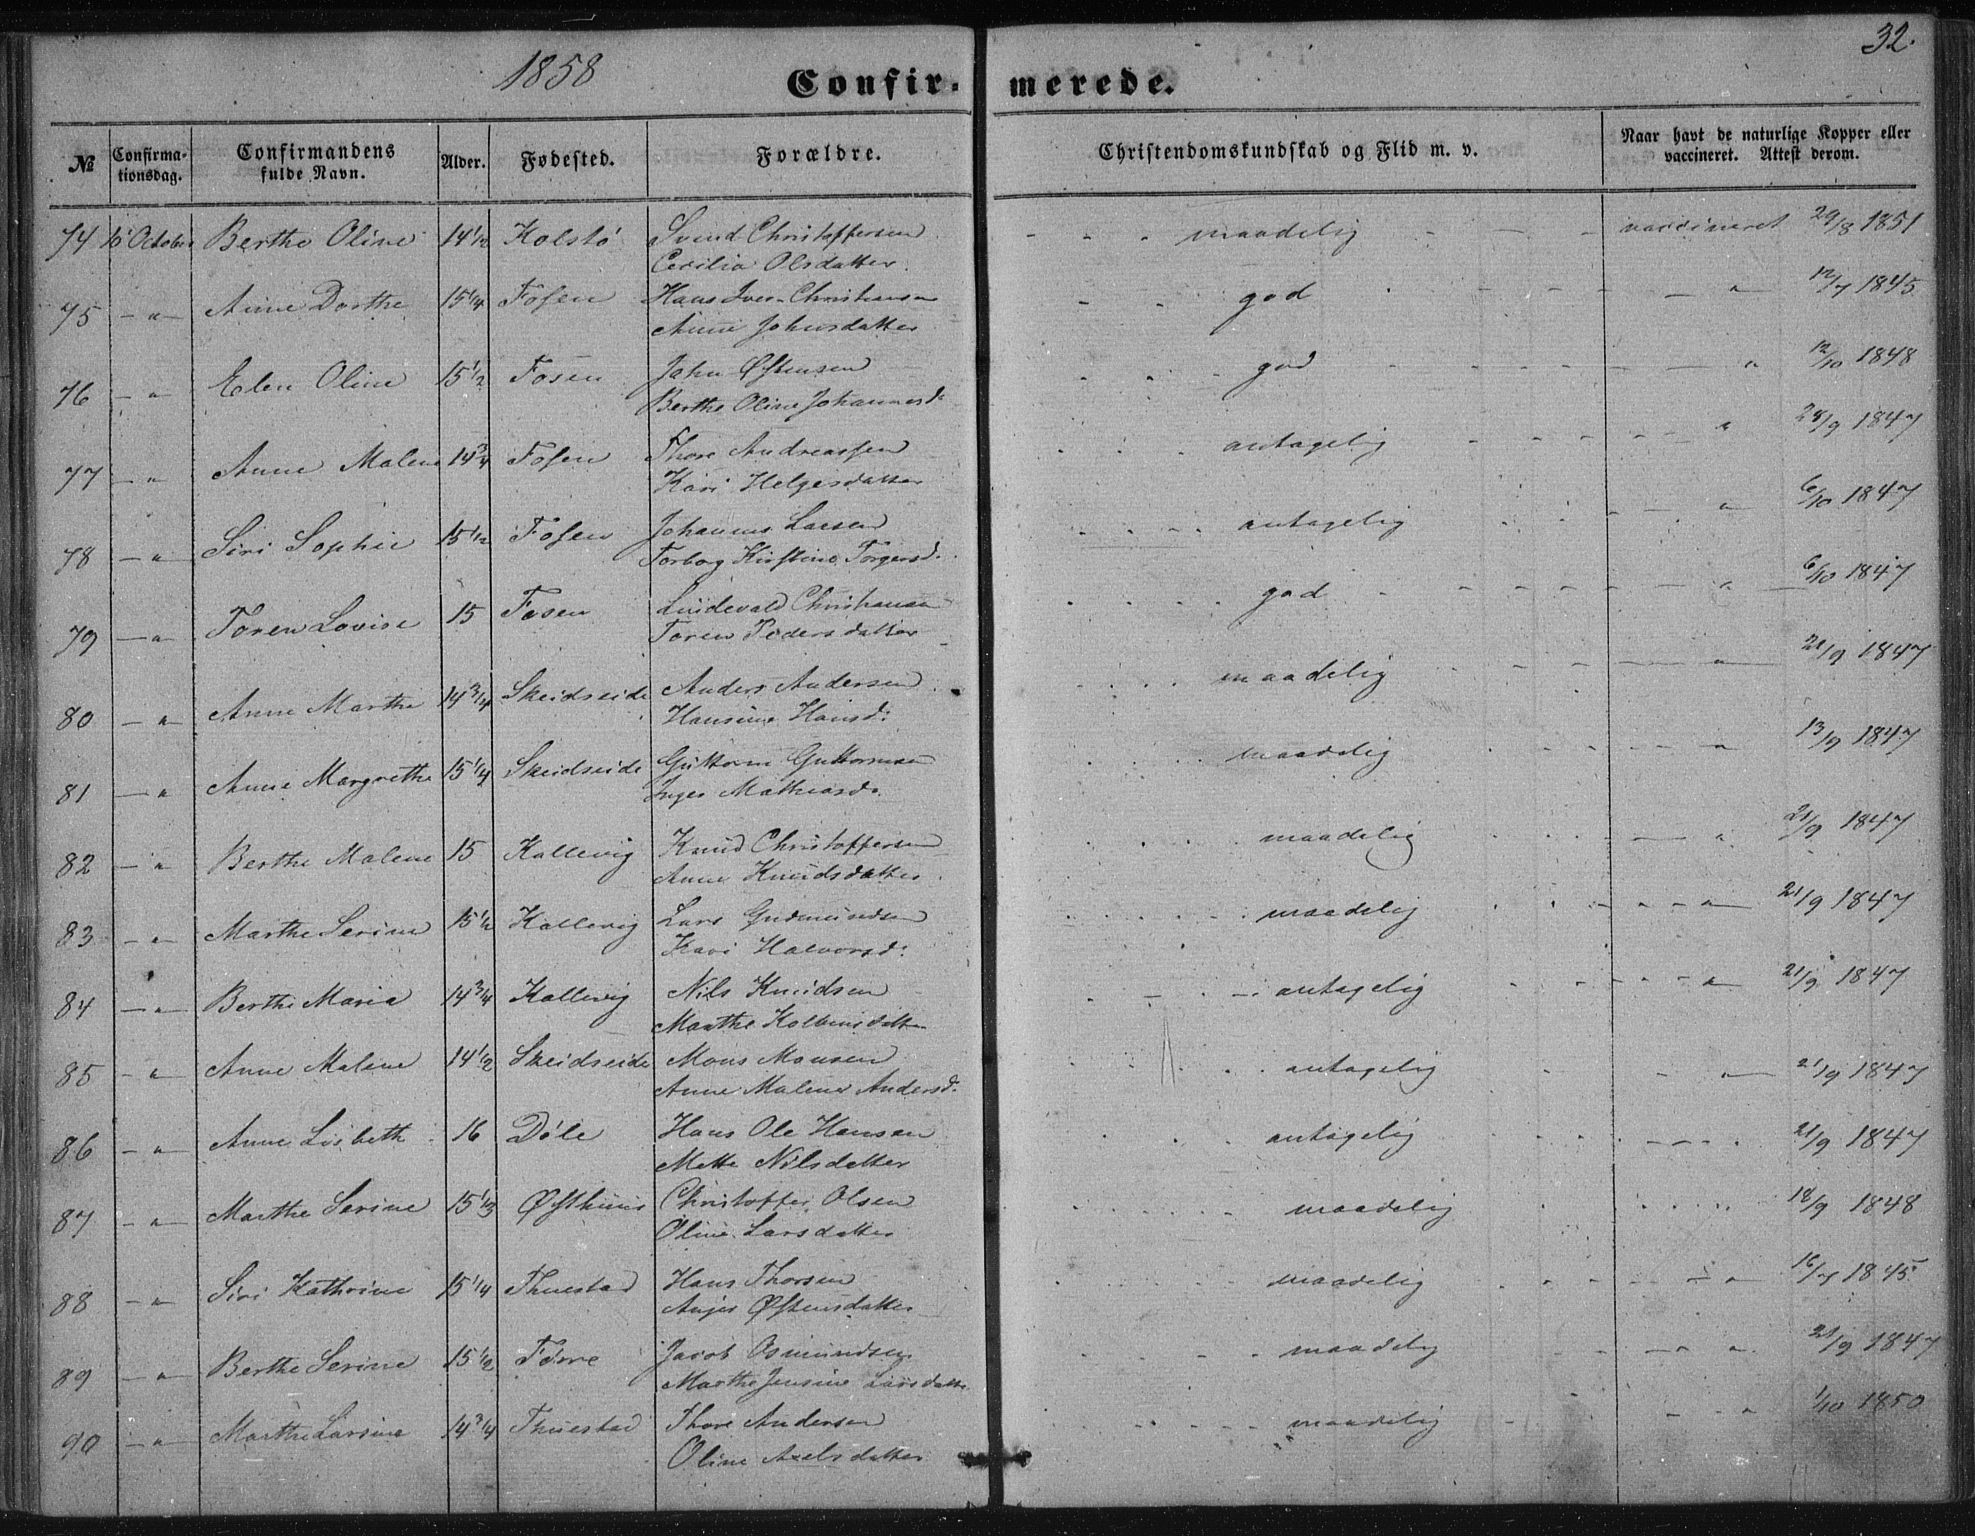 32.
1858
Confir- merede.
№ Confirma-tionsdag. Confirmandens fulde Navn. Alder. Fødested. Forældre. Christendomskundskab og Flid m. v. Naar havt de naturlige Kopper eller vaccineret. Attest derom.
74 10 October Berthe Oline 14 1/2 Kolstø Svend Christoffersen - - maadelig - - - vaccineret 29/8 1851
Cecilia Olsdatter.
75 -"- Anne Dorthe 15 1/4 Fosen Hans Iver Christiansen - - god - - - " 12/7 1845
Anne Johnsdatter
76 -"- Elen Oline 15 1/2 Fosen John Østensen god " 12/10 1848
Berthe Oline Johannesd:
77 -"- Anne Malene 14 3/4 Fosen Thore Andreassen antagelig " 28/9 1847
Kari Helgesdatter
78 -"- Siri Sophie 15 1/2 Fosen Johannes Larsen antagelig " 6/10 1847
Torbog Kirstine Torgersd.
79 -"- Toren Lovise 15 Fosen Lindevald Christiansen god " 6/10 1847
Toren Pedersdatter
80 -"- Anne Marthe 14 3/4 Skeidseide Anders Andersen maadelig " 21/9 1847
Hansine Hansd:
81 -"- Anne Margrethe 15 1/4 Skeidseide Guttorm Guttormsen maadelig " 13/9 1847
Inger Mathiasd:
82 -"- Berthe Malene 15 Kallevig Knud Christoffersen maadelig " 21/9 1847
Anne Knudsdatter
83 -"- Marthe Serine 15 1/2 Kallevig Lars Gudmundsen maadelig " 21/9 1847
Kari Halvorsd:
84 -"- Berthe Maria 14 3/4 Kallevig Nils Knudsen antagelig " 21/9 1847
Marthe Kolbensdatter
85 -"- Anne Malene 14 1/2 Skeidseide Mons Monsen antagelig " 21/9 1847
Anne Malene Andersd.
86 -"- Anne Lisbeth 16 Døle Hans Ole Hansen antagelig 21/9 1847
Mette Nilsdatter
87 -"- Marthe Serine 15 1/3 Østhuus Christoffer Olsen maadelig 18/9 1848
Oline Larsdatter
88 -"- Siri Kathrine 15 1/4 Thuestad Hans Thorsen maadelig " 16/7 1845
Østensdatter
89 -"- Berthe Serine 15 1/2 Førre Jacob Osmundsen maadelig " 21/9 1847
Marthe Jensine Larsdatter
90 -"- Marthe Larsine 14 3/4 Thuestad Thore Andersen maadelig " 1/10 1850
Oline Axelsdatter